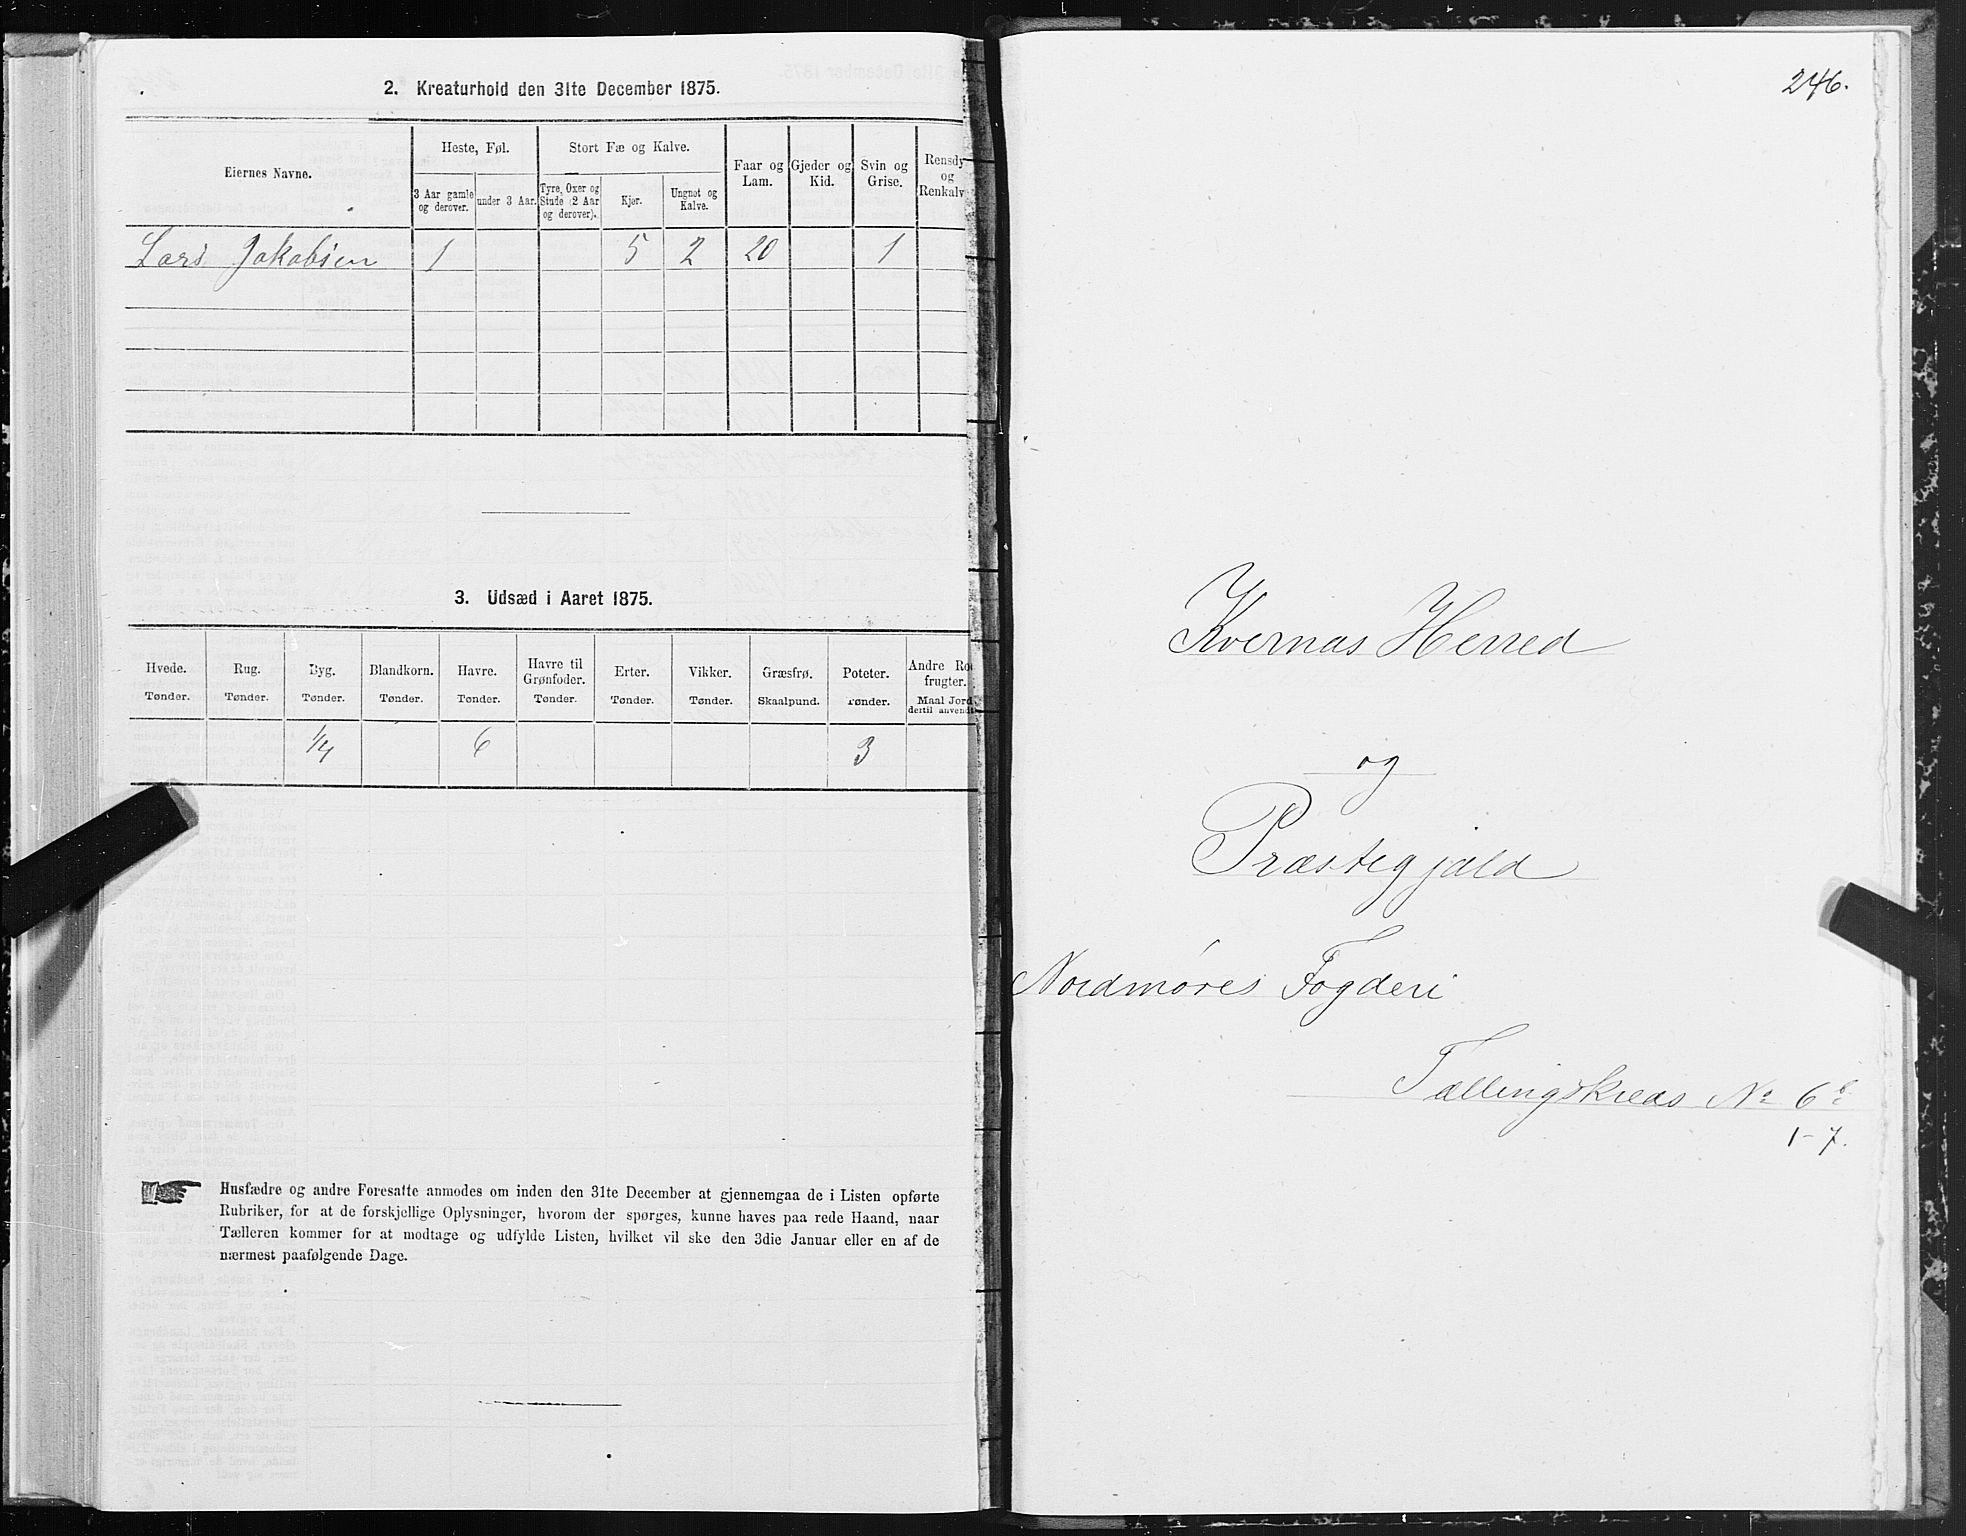 2. Kreaturhold den 31te December 1875.
Eiernes Navne.
Heste, Føl.
Stort Fæ og Kalve.
Faar og Lam.
Gjeder og Kid.
Svin og Grise.
Rensdy
og
Renkalv
3 Aar gamle og derover.
under 3 Aar.
Tyre, Oxer og Stude (2 Aar og derover).
Kjør.
Ungnøt og Kalve.
Lars Jakobsen 1 5 2 20 1
3. Udsæd i Aaret 1875.
Hvede. Rug. Byg. Blandkorn. Havre. Havre til Grønfoder. Erter. Vikker. Græsfrø. Poteter. Andre Ro frugter.
Tønder. Tønder. Tønder. Tønder. Tønder. Tønder. Tønder. Tønder. Skaalpund. Tønder. Maal Jord dertil anvendt
1/4 6 3
Husfædre og andre Foresatte anmodes om inden den 31te December at gjennemgaa de i Listen opførte
Rubriker, for at de forskjellige Oplysninger, hvorom der spørges, kunne haves paa rede Haand, naar
Tælleren kommer for at modtage og udfylde Listen, hvilket vil ske den 3die Januar eller en af de
nærmest paafølgende Dage.
246.
Kvernas Herred
og
Præstegjald
Nordmøres Fogderi
Tællingskreds No 6
1-7.